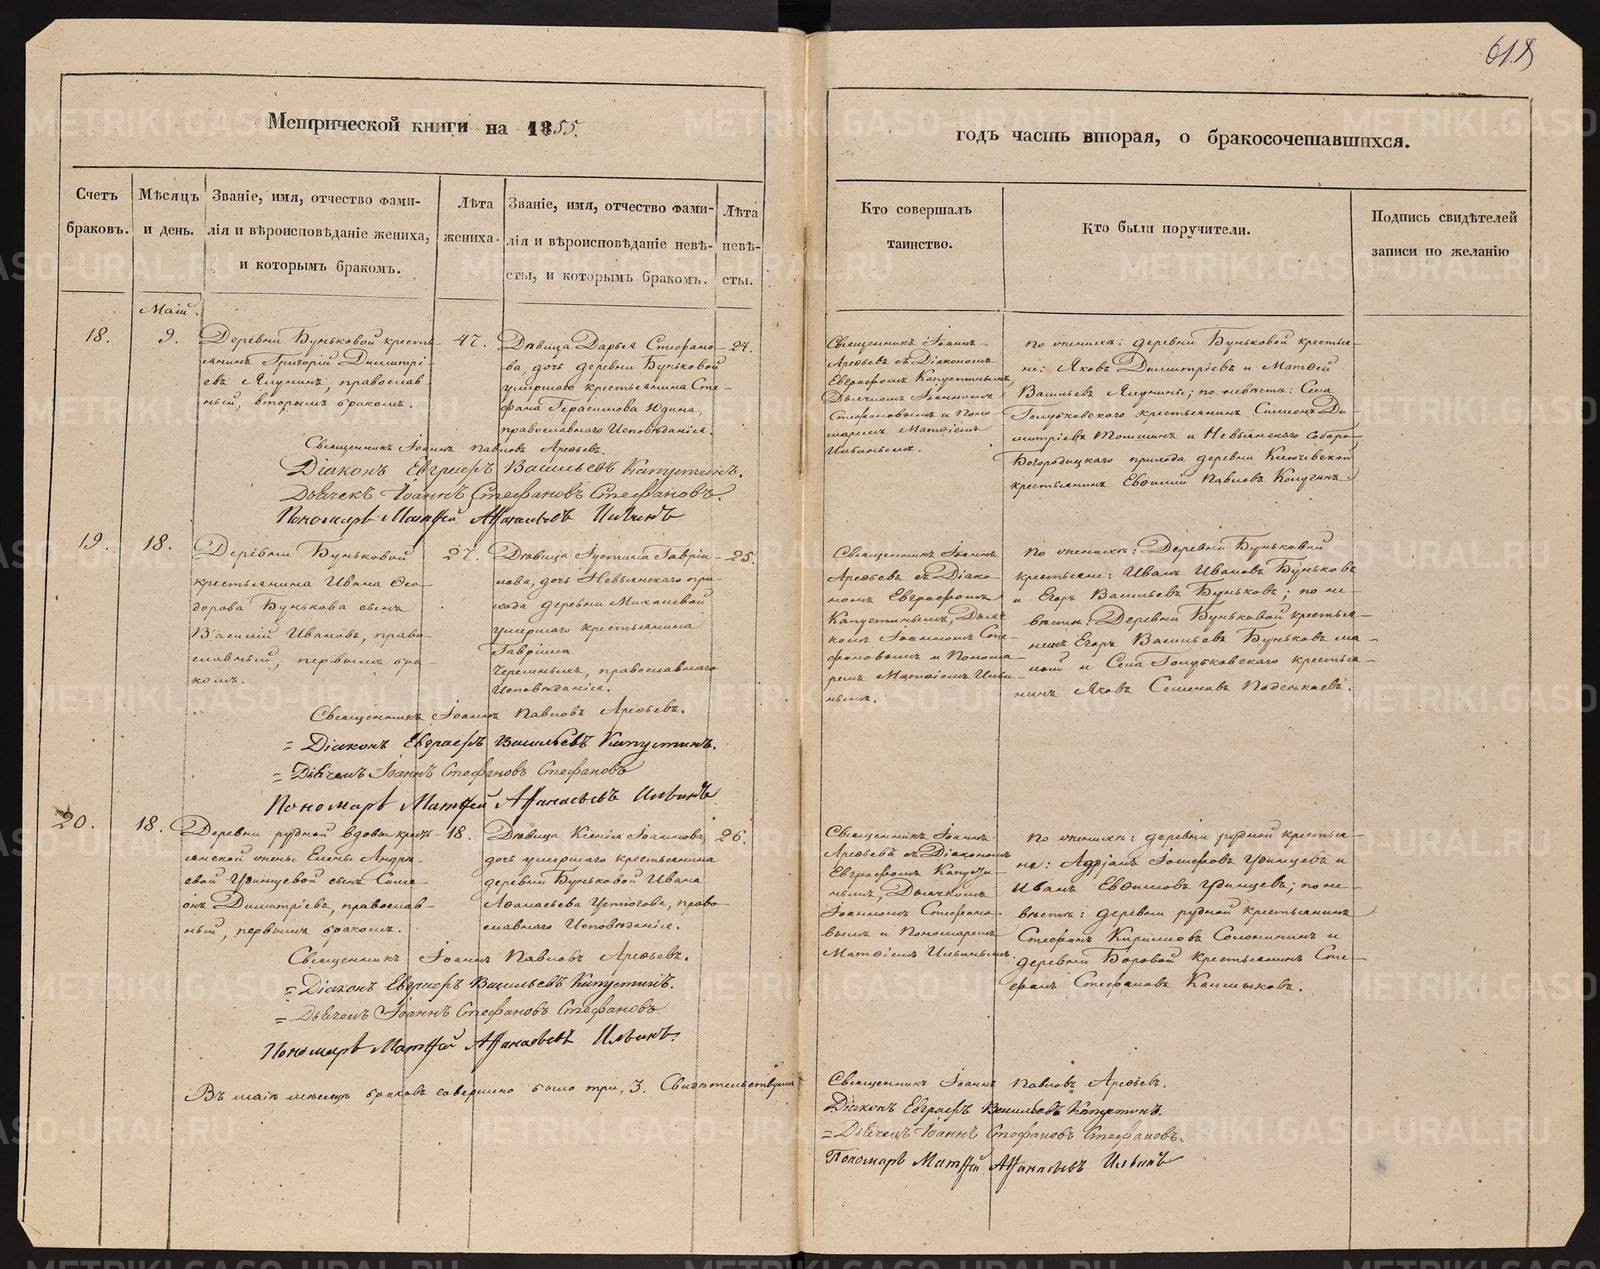 618
Метрической книги на 1855.
годъ часть вторая, о бракосочетавшихся.
Счетъ браковъ.
Мѣсяцъ и день.
Званіе, имя, отчество фами-
лія и вѣроисповѣданіе жениха,
и которымъ бракомъ.
Лѣта
жениха.
Званіе, имя, отчество фами-
лія и вѣроисповѣданіе невѣ-
сты, и которымъ бракомъ.
Лѣта
невѣ-
сты.
Кто совершалъ
таинство.
Кто были поручители.
Подпись свидѣтелей
записи по желанію
Маій.
18.
9.
Деревни Буньковой кресть-
янинъ Григорій Димитрі-
евъ Ялунинъ, православ-
ный, вторымъ бракомъ.
47.
Дѣвица Дарья Стефано-
ва, дочь деревни Буньковой
умершаго крестьянина Сте-
фана Герасимова Юдина,
православнаго Исповѣданія.
24.
Священникъ Іоаннъ
Арефьевъ съ Діакономъ
Евграфомъ Капустинымъ,
Дьячкомъ Іоанномъ
Стефановымъ и Поно-
маремъ Матѳіемъ
Ильинымъ.
по женихѣ: деревни Буньковой крестья-
не: Яковъ Димитріевъ и Матѳей
Васильевъ Ялунины; по невѣстѣ: Села
Голубковскаго крестьянинъ Симеонъ Ди-
митріевъ и Невьянскаго Собора
Богородицкаго прихода деревни Ключевской
крестьянинъ Евѳимій Павловъ
Священникъ Іоаннъ Павловъ Арефьевъ.
Діаконъ Евграфъ Васильевъ Капустинъ.
Дьячекъ Іоаннъ Стефановъ Стефановъ.
Пономарь Матѳей Аѳанасьевъ Ильинъ
19.
18.
Деревни Буньковой
крестьянина Ивана Ѳео-
дорова Бунькова сынъ
Василій Ивановъ, право-
славный, первымъ бра-
комъ.
27.
Дѣвица Іустина Гаврі-
лова, дочь Невьянскаго при-
хода деревни Михалевой
умершаго крестьянина
Гавріила
Черемныхъ, православнаго
Исповѣданія.
25.
Священникъ Іоаннъ
Арефьевъ съ Діако-
номъ Евграфомъ
Капустинымъ, Дьяч-
комъ Іоанномъ Сте-
фановымъ и Понома-
ремъ Матѳіемъ Ильи-
нымъ.
по женихѣ: Деревни Буньковой
крестьяне: Иванъ Ивановъ Буньковъ
и Егоръ Васильевъ Буньковъ; по не-
вѣстѣ: Деревни Буньковой крестья-
нинъ Егоръ Васильевъ Буньковъ ма-
лый и Села Голубковскаго крестья-
нинъ Яковъ Семеновъ
Священникъ Іоаннъ Павловъ Арефьевъ.
= Діаконъ Евграфъ Васильевъ Капустинъ.
= Дьячекъ Іоаннъ Стефановъ Стефановъ
Пономарь Матѳей Аѳанасьевъ Ильинъ
20.
18.
Деревни рудной вдовы кресть-
янской жены Елены Андре-
евой Удинцевой сынъ Симе-
онъ Димитріевъ, православ-
ный, первымъ бракомъ.
18.
Дѣвица Ксенія Іоаннова,
дочь умершаго крестьянина
деревни Буньковой Ивана
Аѳанасьева Устюгова, право-
славнаго Исповѣданія.
26.
Священникъ Іоаннъ
Арефьевъ съ Діакономъ
Евграфомъ Капусти-
нымъ, Дьячкомъ
Іоанномъ Стефано-
вымъ и Пономаремъ
Матѳіемъ Ильинымъ.
по женихѣ: деревни рудной крестья-
не: Адріанъ Іосифовъ Удинцевъ и
Иванъ Евѳимовъ Удинцевъ; по не-
вѣстѣ: деревни рудной крестьянинъ
Стефанъ Кириловъ Солонининъ и
деревни Боровой крестьянинъ Сте-
фанъ Стефановъ
Священникъ Іоаннъ Павловъ Арефьевъ.
= Діаконъ Евграфъ Васильевъ Капустинъ.
= Дьячекъ Іоаннъ Стефановъ Стефановъ
Пономарь Матѳей Аѳанасьевъ Ильинъ.
Въ маіѣ мѣсяцѣ браковъ совершено было три, 3. Свидѣтельствуемъ
Священникъ Іоаннъ Павловъ Арефьевъ.
Діаконъ Евграфъ Васильевъ Капустинъ.
= Дьячекъ Іоаннъ Стефановъ Стефановъ.
Пономарь Матѳей Аѳанасьевъ Ильинъ
METRIKI.GASO-URAL.RU